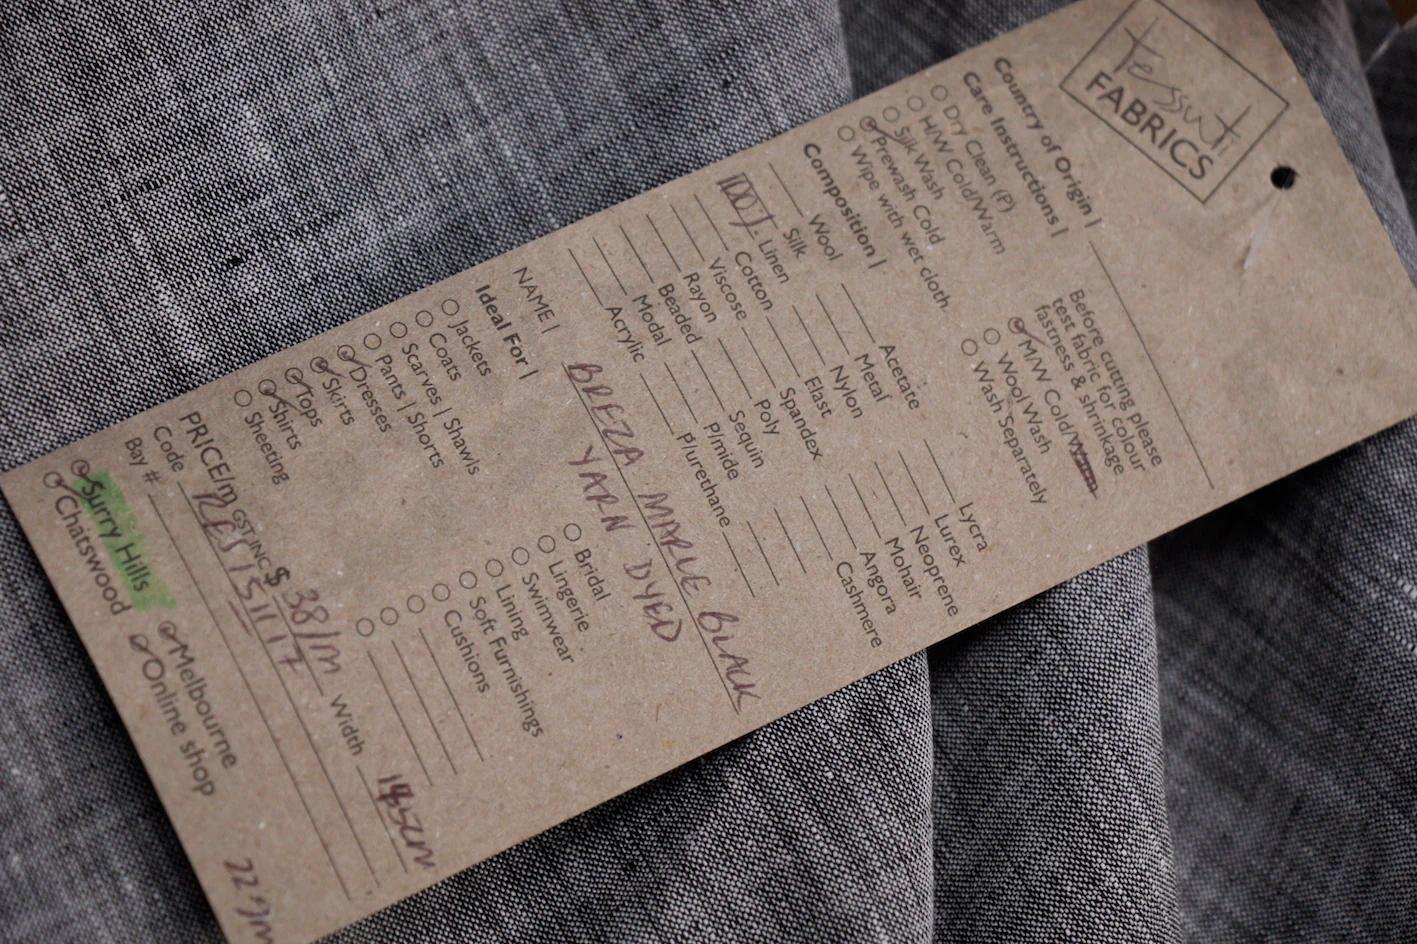 Tessuti
FABRICS
Country of Origin |
Care Instructions |
Dry Clean (P)
H/W Cold/Warm
Silk Wash
Prewash Cold
Wipe with wet cloth.
Before cutting please
test fabric for colour
fastness & shrinkage
M/W Cold/Warm
Wool Wash
Wash Separately
Composition |
Wool
Silk
100% Linen
Cotton
Viscose
Rayon
Beaded
Modal
Acrylic
Acetate
Metal
Nylon
Elast
Spandex
Poly
Sequin
P/mide
P/urethane
Lycra
Lurex
Neoprene
Mohair
Angora
Cashmere
NAME | BREEZA MARLE BLACK
YARN DYED
Ideal For |
Jackets
Coats
Scarves | Shawls
Pants | Shorts
Dresses
Skirts
Tops
Shirts
Sheeting
Bridal
Lingerie
Swimwear
Lining
Soft Furnishings
Cushions
PRICE/m GST INC $ 38/m Width
Code
Bay #
Surry Hills
Chatswood
Melbourne
Online shop